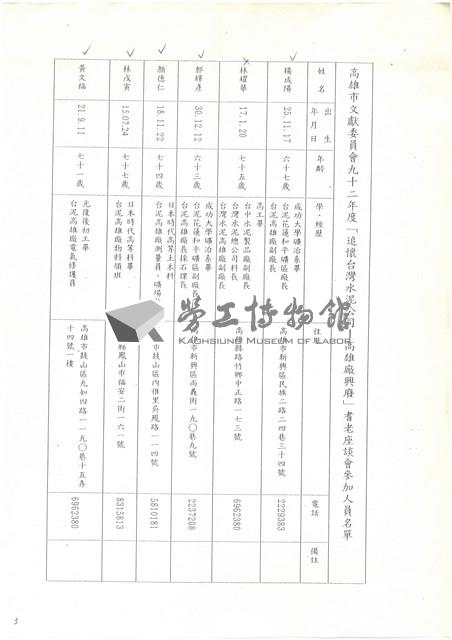 高雄市文獻委員會九十二年度「追懷台灣水泥公司高雄廠興廢」耆老座談會參加人員名單
姓名
出生年月日
年齡
學、經歷
住址
電話
備註
楊成陽
25.11.17
六十七歲
成功大學礦冶系畢
台泥花蓮和平礦區廠長
台泥高雄廠副廠長
高雄市新興區民族二路二四巷三十四號
2229383
林耀華
17.1.20
七十五歲
高工畢
台中水泥製品廠副廠長
台灣水泥總公司科長
台灣水泥高雄廠副廠長
高雄縣路竹鄉中正路一七三號
6962380
郭輝彥
30.12.12
六十三歲
成功大學礦冶系畢
台泥花蓮和平礦區副廠長
台泥高雄廠長採石課長
市新興區尚義街一九〇巷九號
2237208
顏德仁
18.11.22
七十四歲
日本時代高等土木科
台泥高雄廠測量員、礦場
市鼓山區內惟里吳鳳路一一四號
5810181
林戊寅
15.07.24
七十七歲
日本時代高等科畢
台泥高雄廠物料領班
縣鳳山市福安二街一六一號
8315813
黃文福
21.9.11
七十一歲
光復後初工畢
台泥高雄廠電氣修護員
高雄市鼓山區九如四路一一九〇巷十五弄
十四號一樓
6962380
勞工博物館
KAOHSIUNG MUSEUM OF LABOR
3